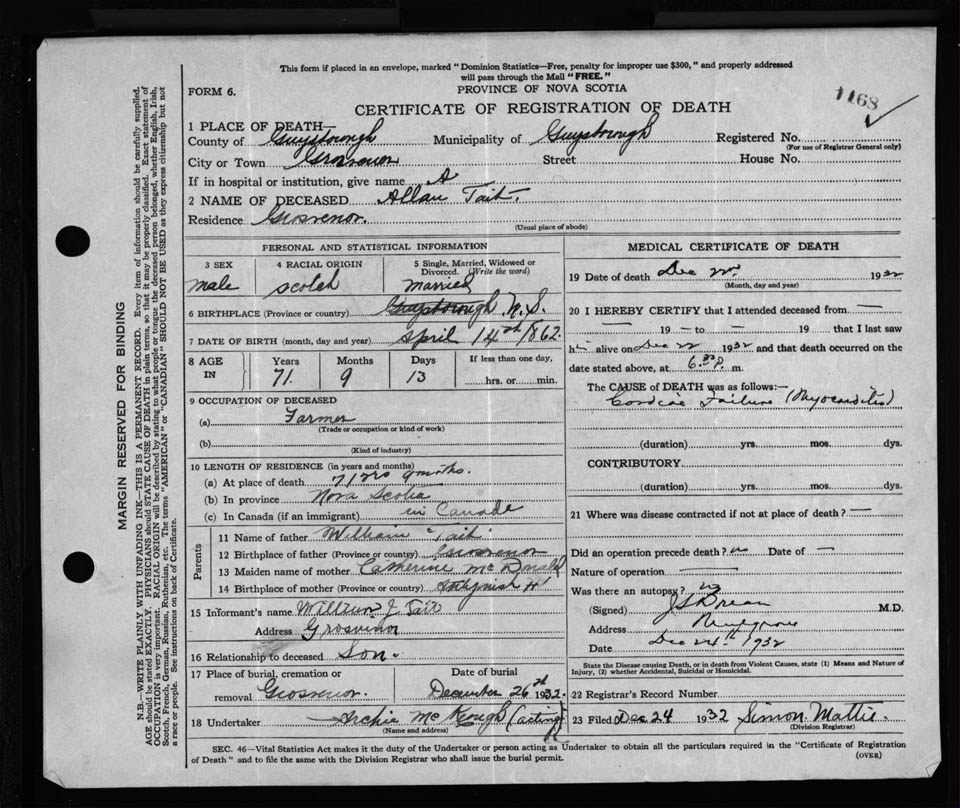 This form if placed in an envelope, marked "Dominion Statistics—Free, penalty for improper use $300," and properly addressed
will pass through the Mail "FREE."
FORM 6.
PROVINCE OF NOVA SCOTIA
1168
CERTIFICATE OF REGISTRATION OF DEATH
1 PLACE OF DEATH—
County of Guysborough Municipality of Guysborough Registered No.
(For use of Registrar General only)
City or Town Grosvenor Street House No.
If in hospital or institution, give name
2 NAME OF DECEASED Allan Tait.
Residence Grosvenor.
(Usual place of abode)
PERSONAL AND STATISTICAL INFORMATION
3 SEX 4 RACIAL ORIGIN 5 Single, Married, Widowed or
Divorced. (Write the word)
male scotch married
6 BIRTHPLACE (Province or country) Guysborough N.S.
7 DATE OF BIRTH (month, day and year) April 14th 1862.
8 AGE IN Years Months Days If less than one day,
71. 9 13 hrs. or min.
9 OCCUPATION OF DECEASED
(a) Farmer
(Trade or occupation or kind of work)
(b)
(Kind of industry)
10 LENGTH OF RESIDENCE (in years and months)
(a) At place of death 71 yrs 9 mths.
(b) In province Nova Scotia
(c) In Canada (if an immigrant) in Canada
Parents
11 Name of father William Tait
12 Birthplace of father (Province or country) Grosvenor
13 Maiden name of mother Catherine McDonald
14 Birthplace of mother (Province or country)
15 Informant's name William J Tait
Address Grosvinor
16 Relationship to deceased Son.
17 Place of burial, cremation or Date of burial
removal Grosvenor. December 26th 1932.
18 Undertaker Archie McKeough (acting)
(Name and address)
MEDICAL CERTIFICATE OF DEATH
19 Date of death Dec 22 1932
(Month, day and year)
20 I HEREBY CERTIFY that I attended deceased from —
— 19 — to — 19 that I last saw
him alive on Dec 22 1932 and that death occurred on the
date stated above, at 6.30 P. m.
The CAUSE of DEATH was as follows:—
Cardiac Failure (Myocarditis)
(duration) yrs. mos. dys.
CONTRIBUTORY
(duration) yrs. mos. dys.
21 Where was disease contracted if not at place of death? —
Did an operation precede death? no Date of —
Nature of operation —
Was there an autopsy? no
(Signed) M.D.
Address Mulgrave
Date Dec 24th 1932
State the Disease causing Death, or in death from Violent Causes, state (1) Means and Nature of
Injury, (2) whether Accidental, Suicidal or Homicidal.
22 Registrar's Record Number
23 Filed Dec 24 1932 Simon Mattie.
(Division Registrar)
SEC. 46—Vital Statistics Act makes it the duty of the Undertaker or person acting as Undertaker to obtain all the particulars required in the "Certificate of Registration
of Death" and to file the same with the Division Registrar who shall issue the burial permit.
(OVER)
MARGIN RESERVED FOR BINDING
N.B.—WRITE PLAINLY WITH UNFADING INK—THIS IS A PERMANENT RECORD. Every item of information should be carefully supplied.
AGE should be stated EXACTLY. PHYSICIANS should STATE CAUSE OF DEATH in plain terms, so that it may be properly classified. Exact statement of
OCCUPATION is very important. RACIAL ORIGIN will be described by stating to what people or tongue the deceased person belonged, whether English, Irish,
Scotch, French, German, Russian, Ruthenian, etc. The terms "AMERICAN" or "CANADIAN" SHOULD NOT BE USED as they express citizenship but not
a race or people. See instructions on back of Certificate.